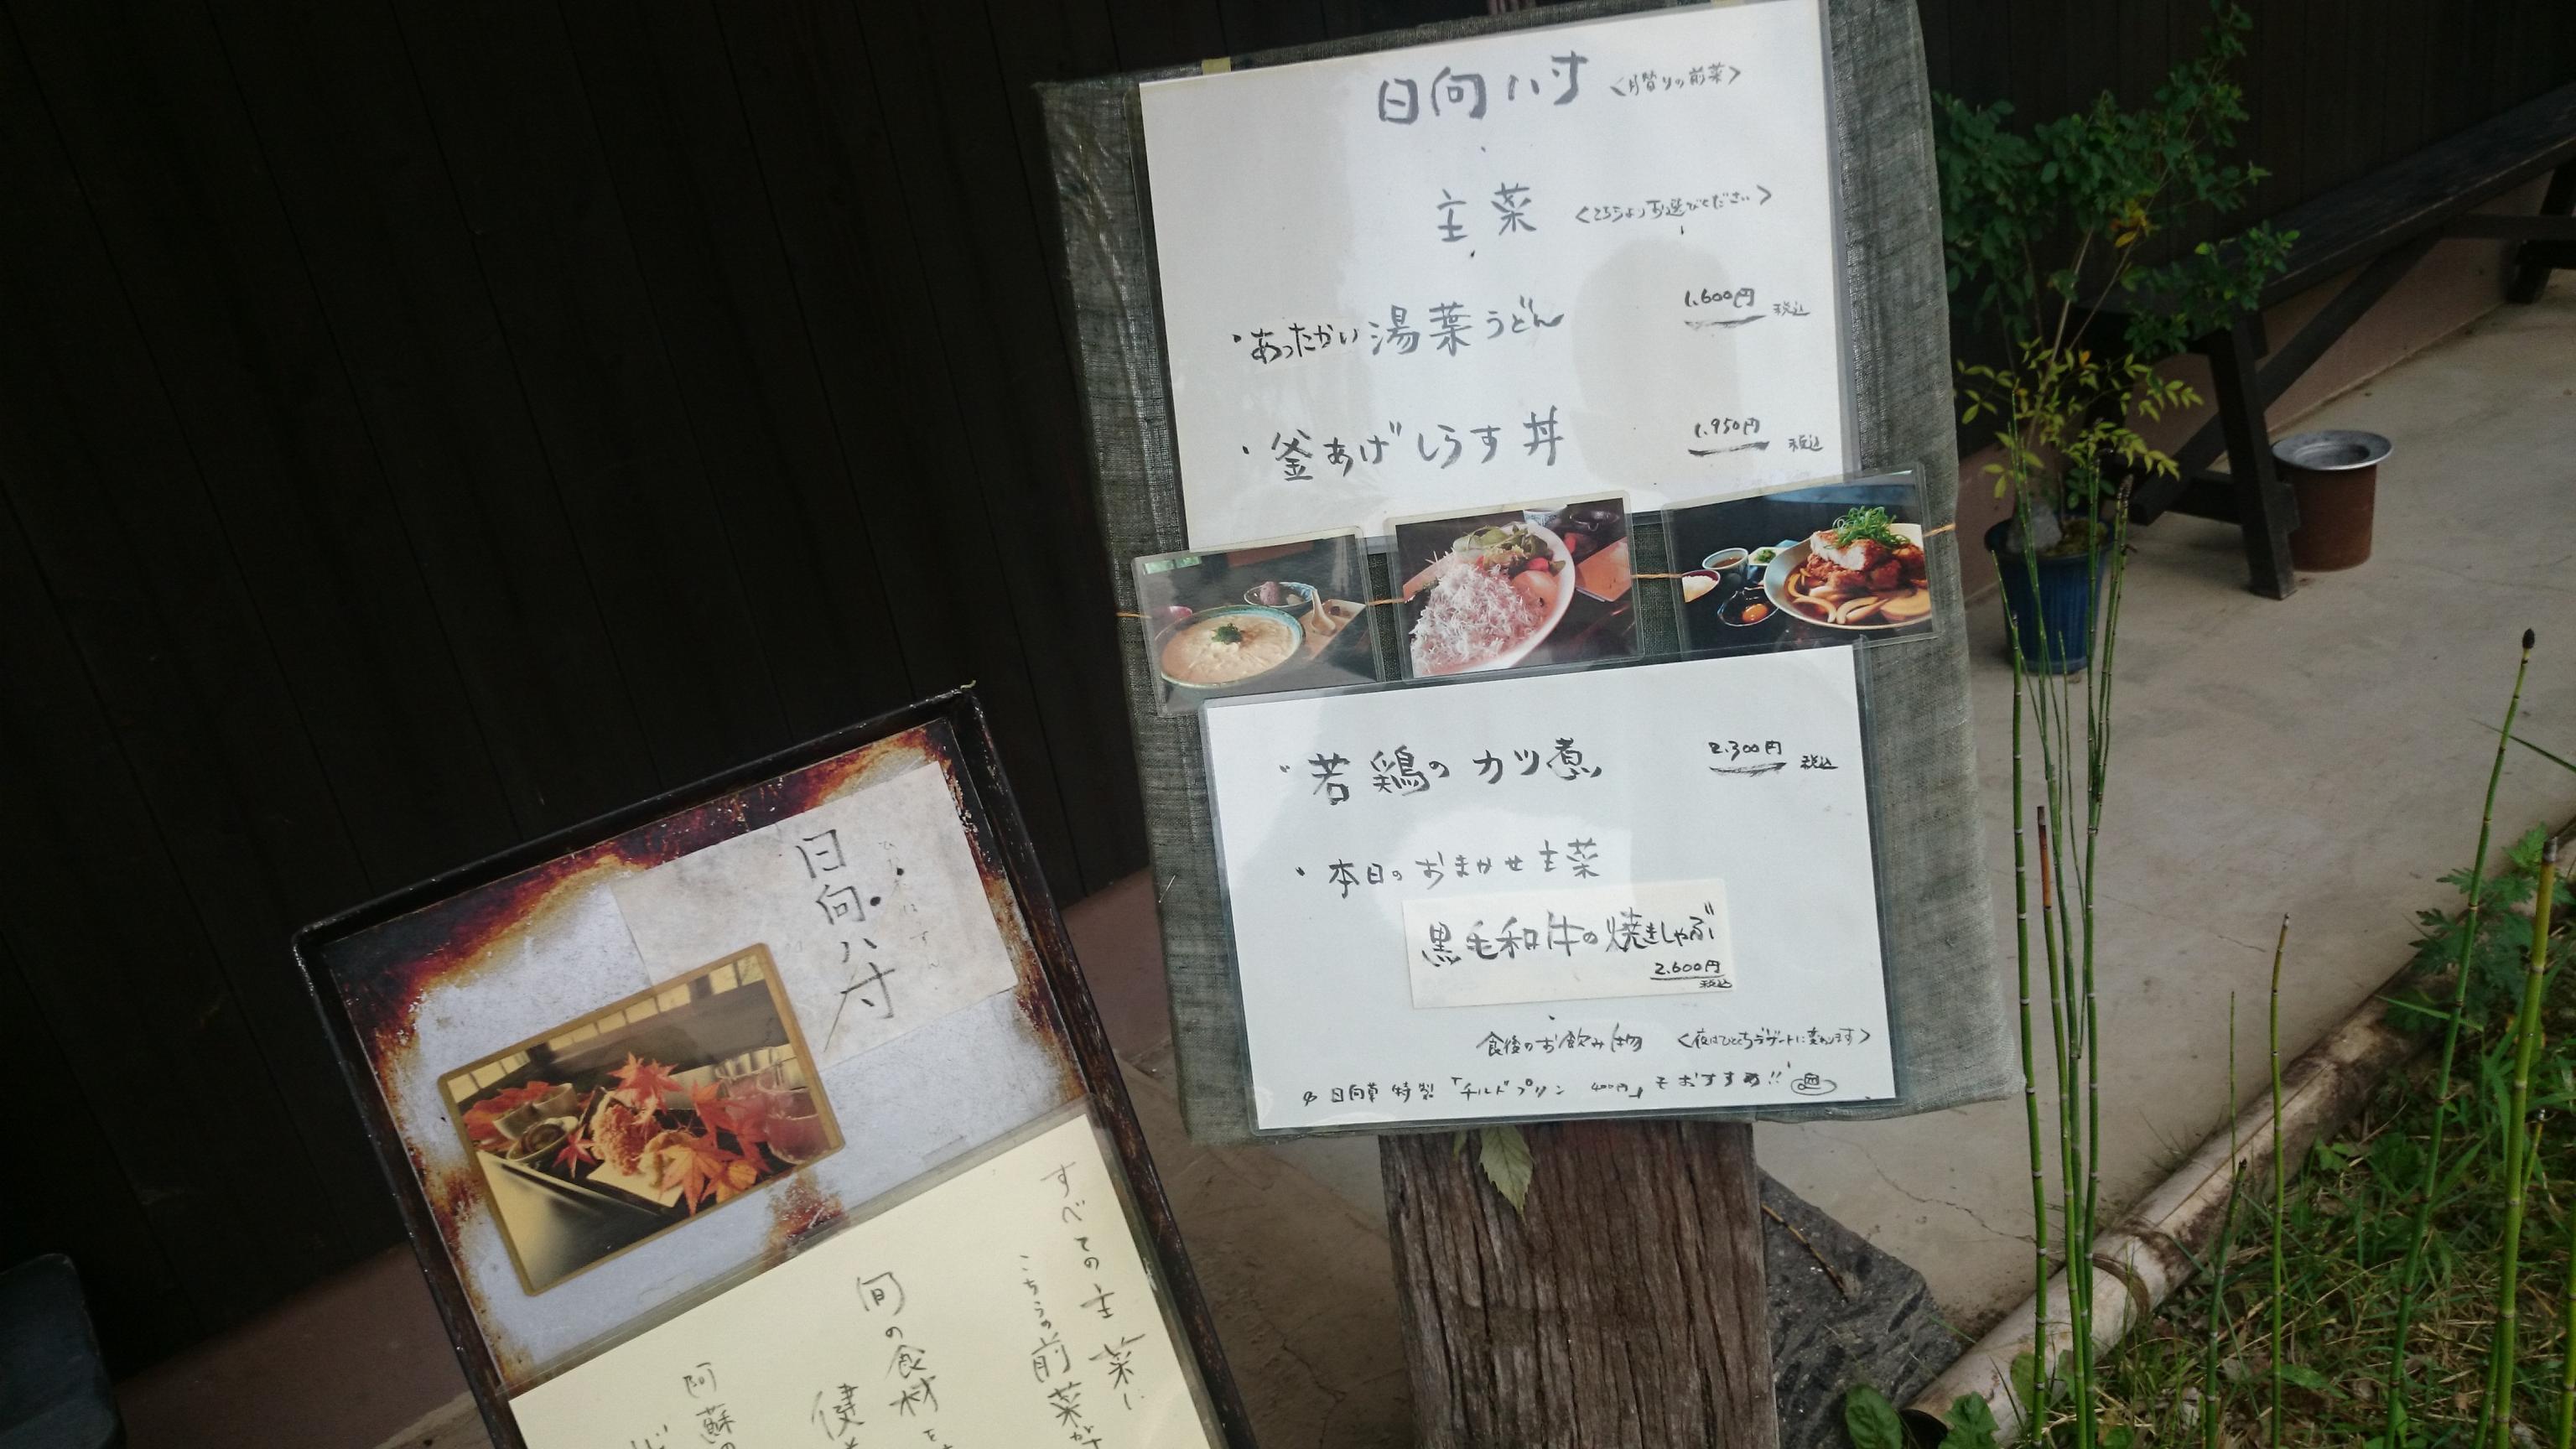 日向八寸 〈月替りの前菜〉
主菜 〈こちらよりお選びください〉
・あったかい湯葉うどん 1.600円 税込
・釜あげしらす丼 1.950円 税込
・若鶏のカツ煮 2.300円 税込
・本日のおまかせ主菜
黒毛和牛の焼きしゃぶ
2.600円
税込
食後のお飲み物 〈夜はひとくちデザートに変わります〉
日向草 特製 「チルドプリン 400円」もおすすめ!!
日向八寸
すべての主菜に
こちらの前菜が
旬の食材を
健
阿蘇の